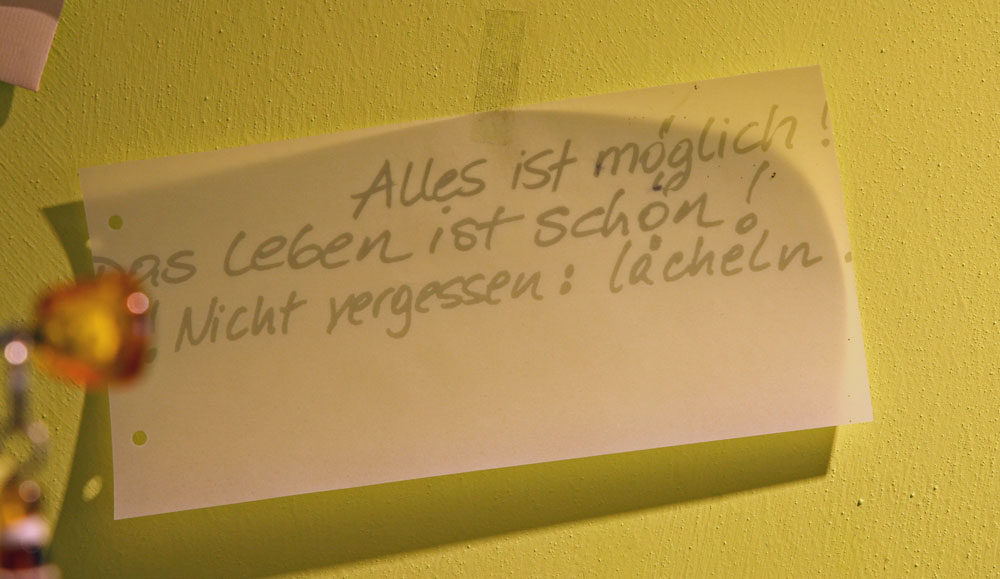 Alles ist möglich!
Das Leben ist schön!
! Nicht vergessen: lächeln.